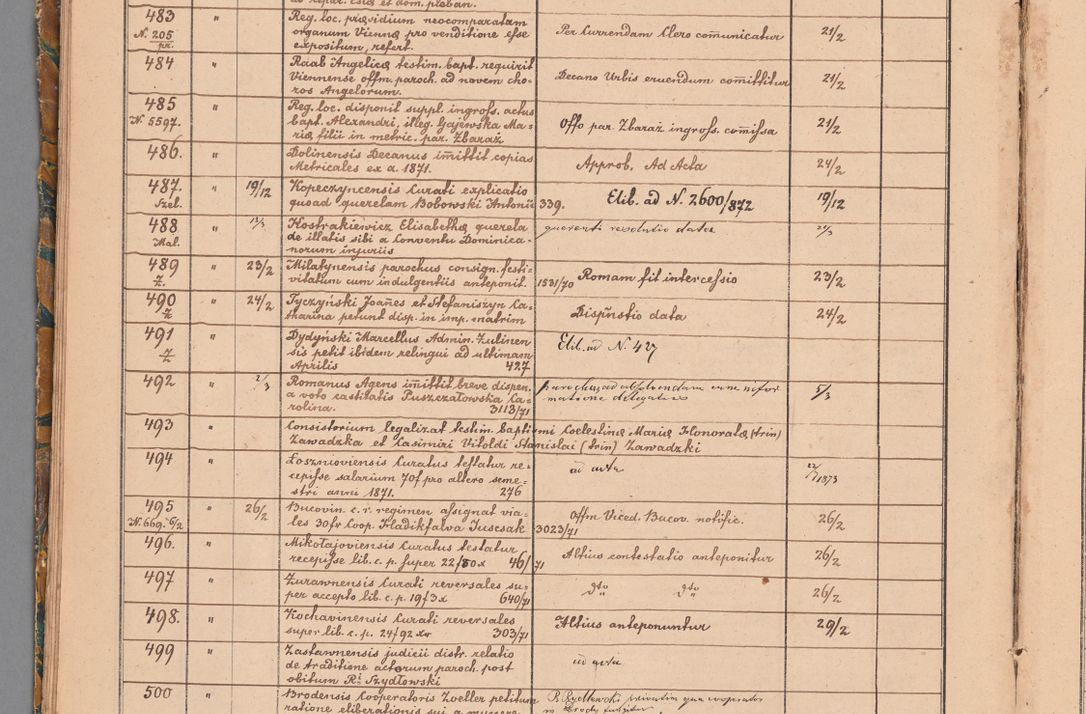 ad repar. Eslæ et dom. pleban.
483 " Reg. loc. præsidium neocomparatam
N. 205 organum Viennæ pro venditione esse Per Currendam Clero comunicatur 21/2
pr. expositum, refert.
484 " Raab Angelicæ testim. bapt. requirit
Viennense offm. paroch. ad novem cho- Decano Urbis eruendum comittitur 21/2
ros Angelorum.
485 " Reg. loc. disponit suppl. ingross. actus
N. 5597. bapt. Alexandri, illeg. Gajewska Ma- Offo par. Zbaraż ingross. comissa 21/2
riæ filii in metric. par. Zbaraż
486. " Dolinensis Decanus imittit copias Approb. Ad Acta 24/2
Metricales ex a. 1871.
487. " 19/12 Kopeczyncensis Curati explicatio Elib. ad N. 2600/872 19/12
Szel. quoad querelam Bobowski Antonii 339.
488 " Kostrakiewicz Elisabethæ querela querenti resolutio data
Mal. de illatis sibi a Conventu Dominica-
norum injuriis
489 " 23/2 Milatynensis parochus consign. festi- Romam fit intercessio 23/2
Z. vitatum cum indulgentiis anteponit. 1531/70
490 " 24/2 Tyczyński Joañes et Stefaniszyn Ca- Dispñstio data 24/2
Z tharina petunt disp. in imp. matrim
491 " Dydyński Marcellus Admin. Żulinen Elib. ad N. 427
Z sis petit ibidem relinqui ad ultimam
Aprilis 427
492 " 2/3 Romanus Agens imittit breve dispen. parochus ad absolvendam cum infor 5/3
a voto castitatis Puszczałowska Ca- matione delegatus
rolina. 3113/71
493 " Consistorium legalizat testim. baptismi Coelestinæ Mariæ Honoratæ (trin)
Zawadzka et Casimiri Vitoldi Stanislai (trin) Zawadzki
494 " Łosznioviensis Curatus testatur re- ad acta
cepisse salarium 70f pro altero seme-
stri anni 1871. 276
495 " 26/2 Bucovin. c. r. regimen assignat via- Offm Viced. Bucov. notific. 26/2
N. 669. 6/2 les 30fr Coop. Hadikfalva Juscsak 3023/71
496. " Mikołajoviensis Curatus testatur Altius contestatio anteponitur 26/2
recepisse lib. c. p. super 22f50x 46/71
497 " Żurawnensis Curati reversales su- dto dto 26/2
per accepto lib. c. p. 19f3x 640/71
498. " Kochavinensis Curati reversales Altius anteponuntur 29/2
super lib. c. p. 24f92 xr 303/71
499 " Zastawnensis judicii distr. relatio ad acta
de traditione actorum paroch. post
obitum Ri Szydłowski
500 " Brodensis Cooperatoris Zoeller petitum R. Szydłowski
ratione eliberationis sui a munere